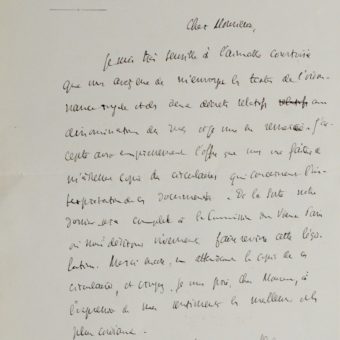 Cher Monsieur,
Je suis très sensible à l'aimable courtoisie
que vous avez eue de m'envoyer les textes de l'ordon-
nance royale et des deux décrets relatifs aux
dénominations des rues et je vous en remercie. J'ac-
cepte avec empressement l'offre que vous me faites
copie des circulaires qui concernent l'in-
terprétation de ces documents. De la sorte notre
dossier sera complet à la Commission du Vieux Paris
où nous désirons vivement faire revivre cette légis-
lation. Merci encore, en attendant la copie de ces
circulaires, et croyez, je vous prie, cher Monsieur, à
l'expression de mes sentiments les meilleurs et les
plus cordiaux.